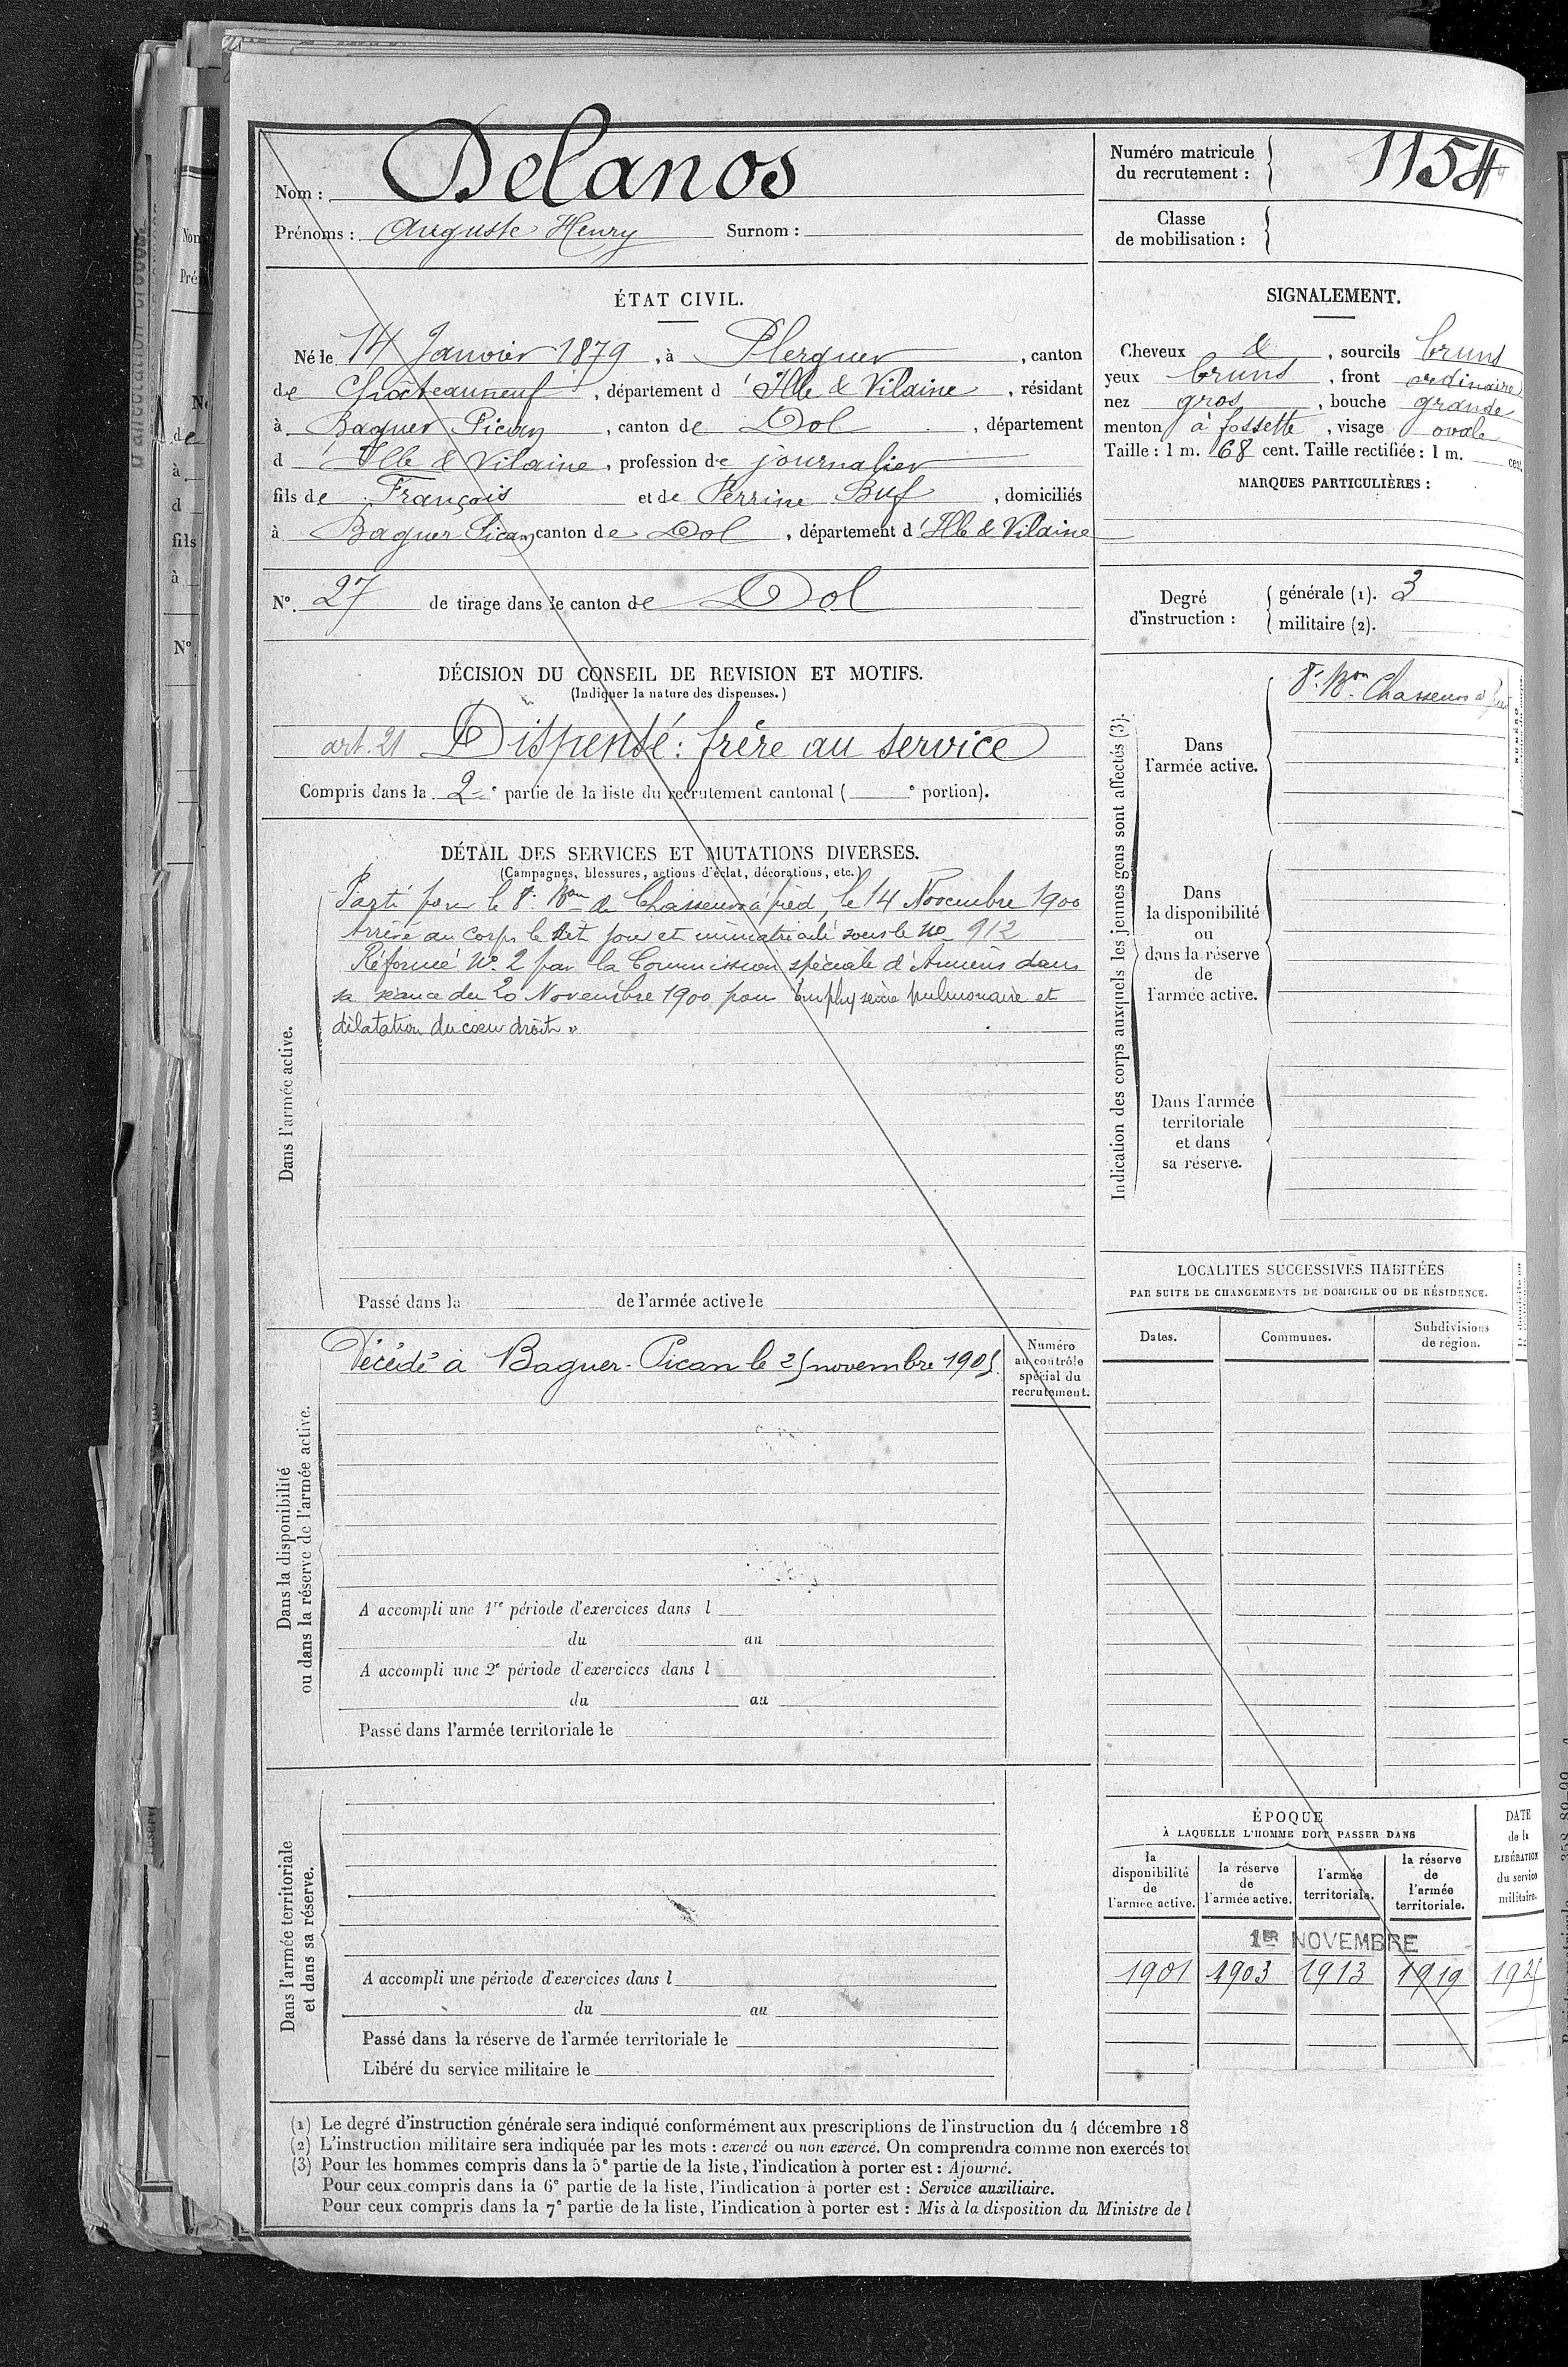 Nom : Delanos
Prénoms : Auguste Henry Surnom :
Numéro matricule du recrutement : 1154
Classe de mobilisation :
ÉTAT CIVIL.
Né le 14 Janvier 1879, à Plerguer, canton
de Châteauneuf, département d'Ille & Vilaine, résidant
à Baguer Pican, canton de Dol, département
d'Ille & Vilaine, profession de journalier
fils de François et de Perrine Buf, domiciliés
à Baguer Pican canton de Dol, département d'Ille & Vilaine
N° 27 de tirage dans le canton de Dol
SIGNALEMENT.
Cheveux &, sourcils bruns
yeux bruns, front ordinaire
nez gros, bouche grande
menton à fossette, visage ovale
Taille : 1 m. 68 cent. Taille rectifiée : 1 m. cent.
MARQUES PARTICULIÈRES :
Degré d'instruction : générale (1). 3
militaire (2).
DÉCISION DU CONSEIL DE REVISION ET MOTIFS.
(Indiquer la nature des dispenses.)
art. 21 Dispensé : frère au service
Compris dans la 2e partie de la liste du recrutement cantonal ( e portion).
DÉTAIL DES SERVICES ET MUTATIONS DIVERSES.
(Campagnes, blessures, actions d'éclat, décorations, etc.)
Dans l'armée active.
Parti pour le 8e Bon de Chasseurs à pied, le 14 Novembre 1900
Arrivé au corps le dit jour et immatriculé sous le no 912
Réformé No 2 par la Commission spéciale d'Amiens dans
sa séance du 20 Novembre 1900 pour emphysème pulmonaire et
dilatation du cœur droit »
Passé dans la de l'armée active le
Indication des corps auxquels les jeunes gens sont affectés (3).
Dans
l'armée active.
8e Bon Chasseurs à pied
Dans
la disponibilité
ou
dans la réserve
de
l'armée active.
Dans l'armée
territoriale
et dans
sa réserve.
Dans la disponibilité
ou dans la réserve de l'armée active.
Décédé à Baguer-Pican le 25 novembre 1905.
Numéro
au contrôle
spécial du
recrutement.
A accompli une 1re période d'exercices dans l
du au
A accompli une 2e période d'exercices dans l
du au
Passé dans l'armée territoriale le
LOCALITÉS SUCCESSIVES HABITÉES
PAR SUITE DE CHANGEMENTS DE DOMICILE OU DE RÉSIDENCE.
Dates. Communes. Subdivisions
de région.
Dans l'armée territoriale
et dans sa réserve.
A accompli une période d'exercices dans l
du au
Passé dans la réserve de l'armée territoriale le
Libéré du service militaire le
ÉPOQUE
À LAQUELLE L'HOMME DOIT PASSER DANS
la
disponibilité
de
l'armée active.
la réserve
de
l'armée active.
l'armée
territoriale.
la réserve
de
l'armée
territoriale.
DATE
de la
LIBÉRATION
du service
militaire.
1ER NOVEMBRE
1901 1903 1913 1919 1925
(1) Le degré d'instruction générale sera indiqué conformément aux prescriptions de l'instruction du 4 décembre 18
(2) L'instruction militaire sera indiquée par les mots : exercé ou non exercé. On comprendra comme non exercés tou
(3) Pour les hommes compris dans la 5e partie de la liste, l'indication à porter est : Ajourné.
Pour ceux compris dans la 6e partie de la liste, l'indication à porter est : Service auxiliaire.
Pour ceux compris dans la 7e partie de la liste, l'indication à porter est : Mis à la disposition du Ministre de l